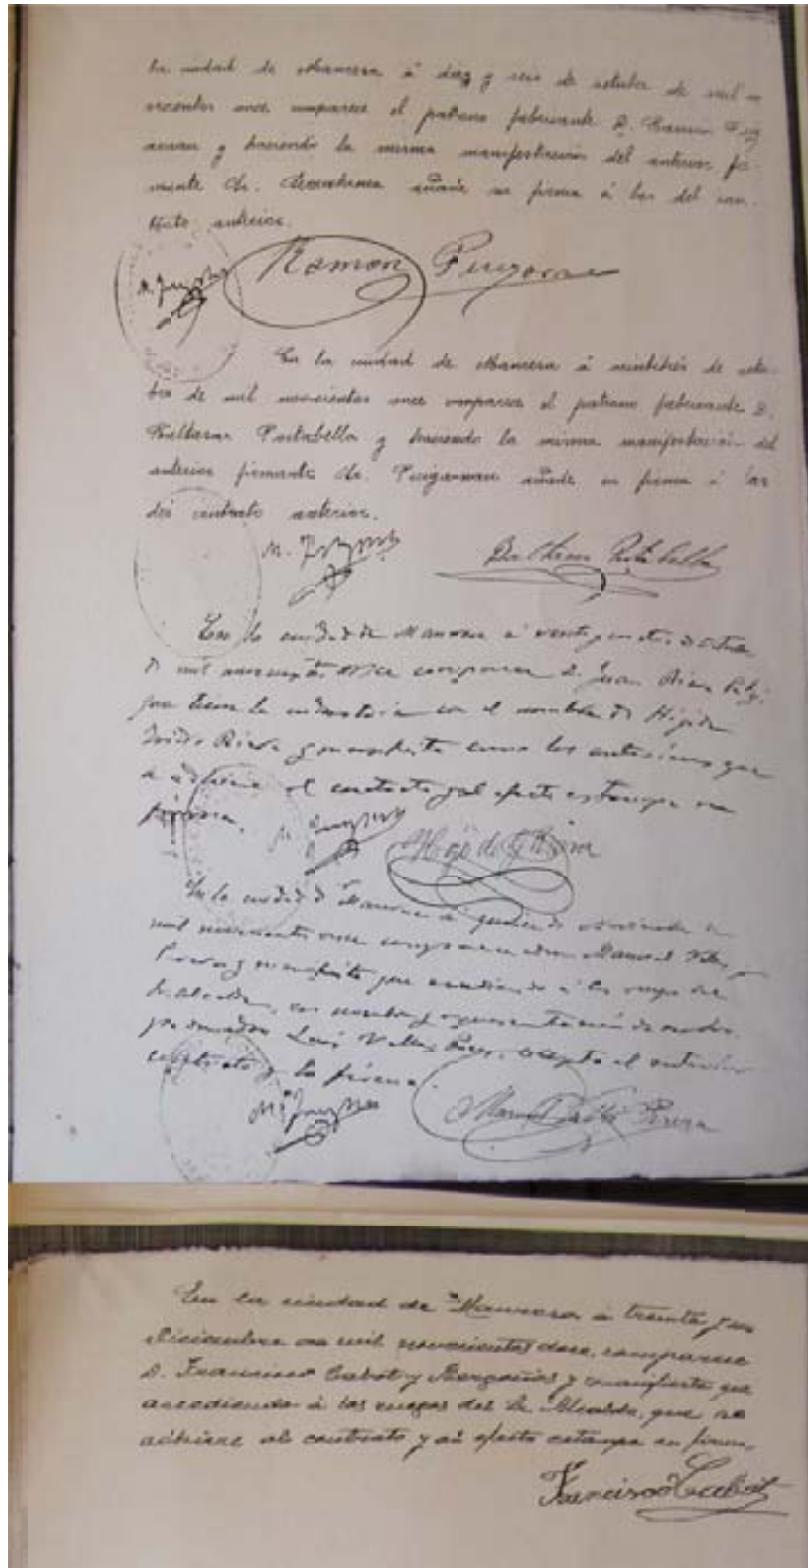 la ciudad de Manresa á diez y seis de octubre de mil no
vecientos once comparece el patrono fabricante D. Ramón Puig
armau y haciendo la misma manifestación del anterior fir
mante Sr. añade su firma á las del con
trato anterior.
Ramon Puigarnau
En la ciudad de Manresa á veintitrés de octu
bre de mil novecientos once comparece el patrono fabricante D.
Baltasar Portabella y haciendo la misma manifestación del
anterior firmante Sr. Puigarnau añade su firma á las
del contrato anterior.
Balthasar Portabella
En la ciudad de Manresa á veinticuatro de octubre
de mil novecientos once comparece D. Juan Riera
que tiene la industria con el nombre de Hijo de
Isidro Riera y manifiesta como los anteriores que
se adhiere al contrato y al efecto estampa su
firma.
Hijo de I. Riera
En la ciudad de Manresa á quince de noviembre de
mil novecientos once comparece don Manuel Vallés
Perera y manifiesta que accediendo á los ruegos del
Sr. Alcalde, en nombre y representación de
Luis Vallés acepta el anterior
contrato y lo firma.
Manuel Vallés Perera
En la ciudad de Manresa á treinta y uno
Diciembre de mil novecientos doce, comparece
D. Francisco Cabot y y manifiesta que
accediendo á los ruegos del Sr. Alcalde, que se
adhiere al contrato y al efecto estampa su firma.
Francisco Cabot